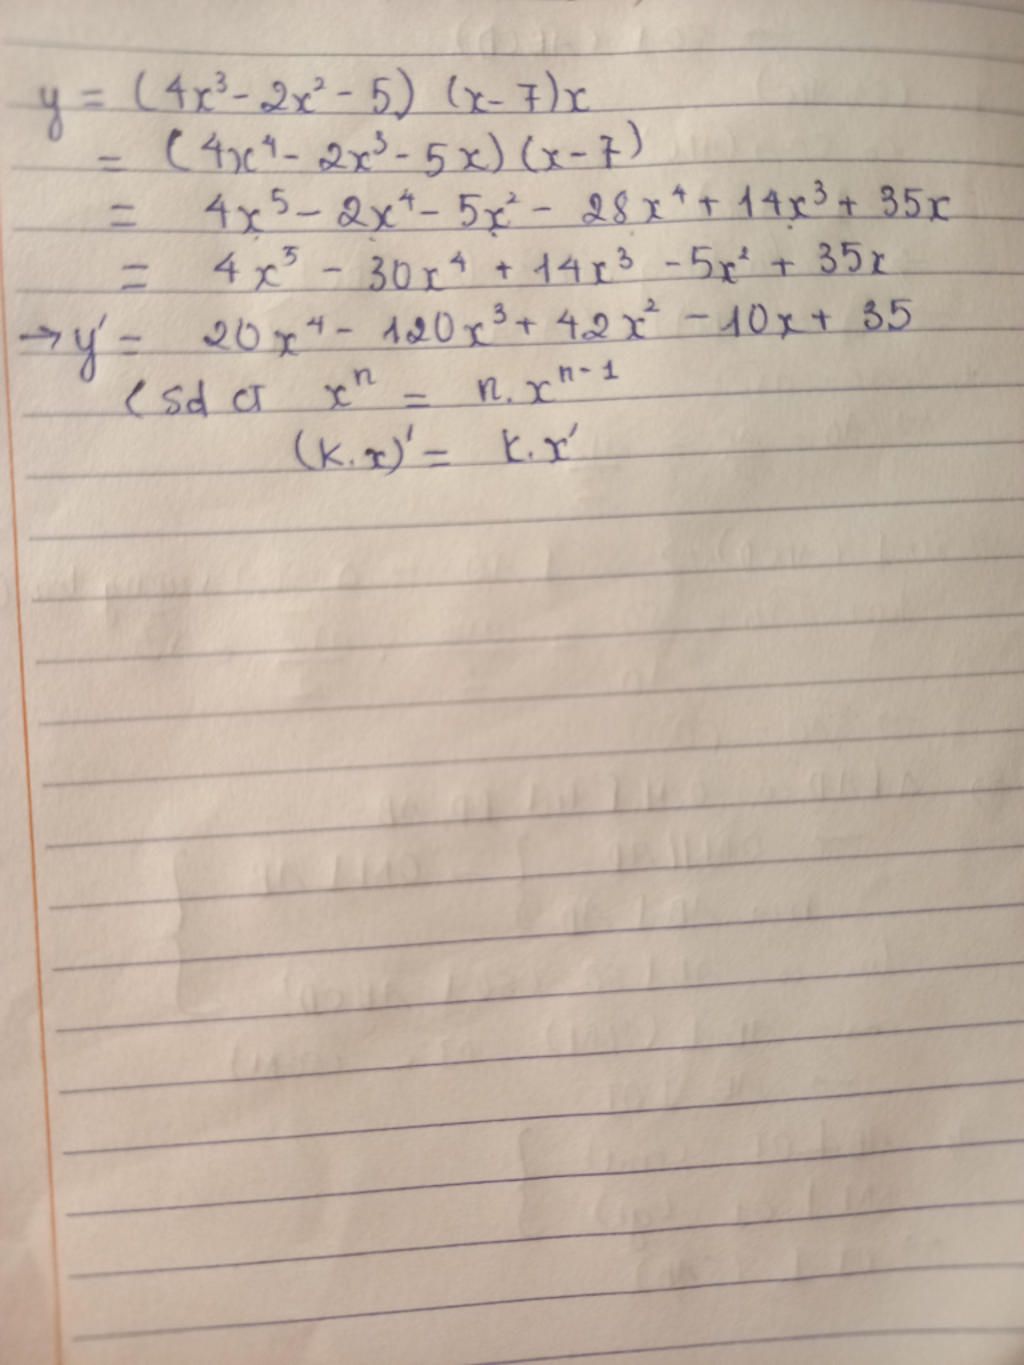 y = (4x³ - 2x² - 5) (x - 7)x
= (4x⁴ - 2x³ - 5x) (x - 7)
= 4x⁵ - 2x⁴ - 5x² - 28x⁴ + 14x³ + 35x
= 4x⁵ - 30x⁴ + 14x³ - 5x² + 35x
→ y' = 20x⁴ - 120x³ + 42x² - 10x + 35
(sd ct xⁿ = n.xⁿ⁻¹
(k.x)' = k.x'